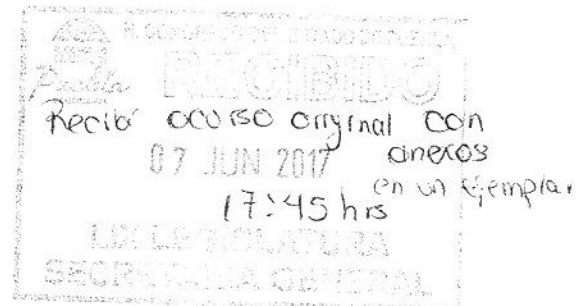 H. CONGRESO DEL ESTADO DE PUEBLA
Puebla
RECIBIDO
Recibí ocurso original con
anexos
07 JUN 2017
en un ejemplar
17:45 hrs
LIX LEGISLATURA
SECRETARIA GENERAL